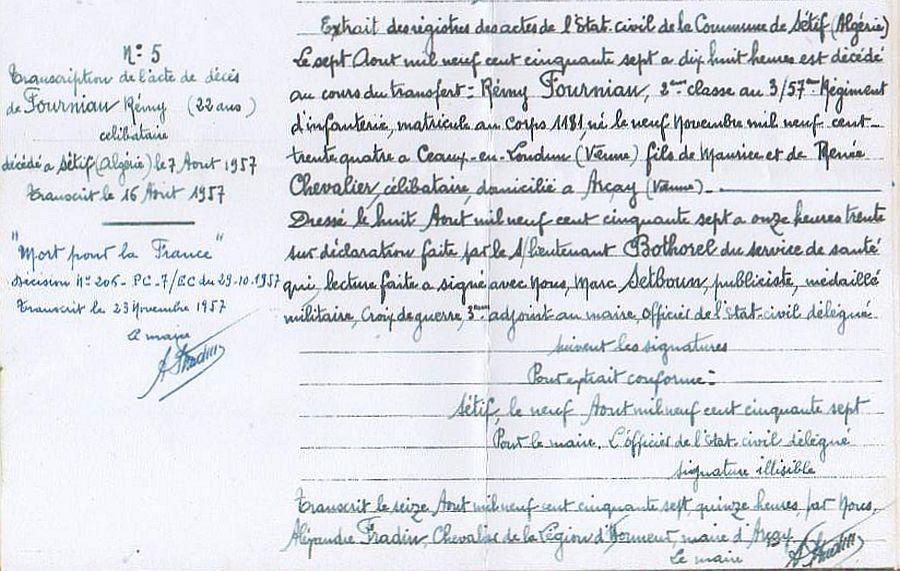 N° 5
Transcription de l'acte de décès
de Fournian Rémy (22 ans)
celibataire
décédé a Sétif (Algérie) le 7 Aout 1957
Transcrit le 16 Aout 1957
"Mort pour la France"
Décision N° 206 - PC - 7/EC du 29-10-1957
Transcrit le 23 Novembre 1957
Le maire
A Fradin
Extrait des régistres des actes de l'Etat-civil de la Commune de Sétif (Algérie)
Le sept Aout mil neuf cent cinquante sept a dix huit heures est décédé
au cours du transfert = Rémy Fournian, 2ème classe au 3/57ème Régiment
d'infanterie, matricule au Corps 1181, né le neuf Novembre mil neuf-cent-
trente quatre a Ceaux-en-Loudun (Vienne) fils de Maurice et de Renée
Chevalier, célibataire, domicilié a Arçay (Vienne)
Dressé le huit Aout mil neuf cent cinquante sept a onze heures trente
sur déclaration faite par le s/lieutenant Bothorel du service de santé
qui, lecture faite a signé avec Nous, Marc Setboun, publiciste, médaillé
militaire, Croix de guerre, 3ème adjoint au maire, officier de l'Etat-civil délégué
suivent les signatures
Pour extrait conforme =
Sétif, le neuf Aout mil neuf cent cinquante sept
Pour le maire. L'officier de l'Etat-civil délégué
signature illisible
Transcrit le seize Aout mil neuf cent cinquante sept, quinze heures, par Nous,
Alexandre Fradin, Chevalier de la Légion d'Honneur, maire d'Arçay
Le maire A Fradin